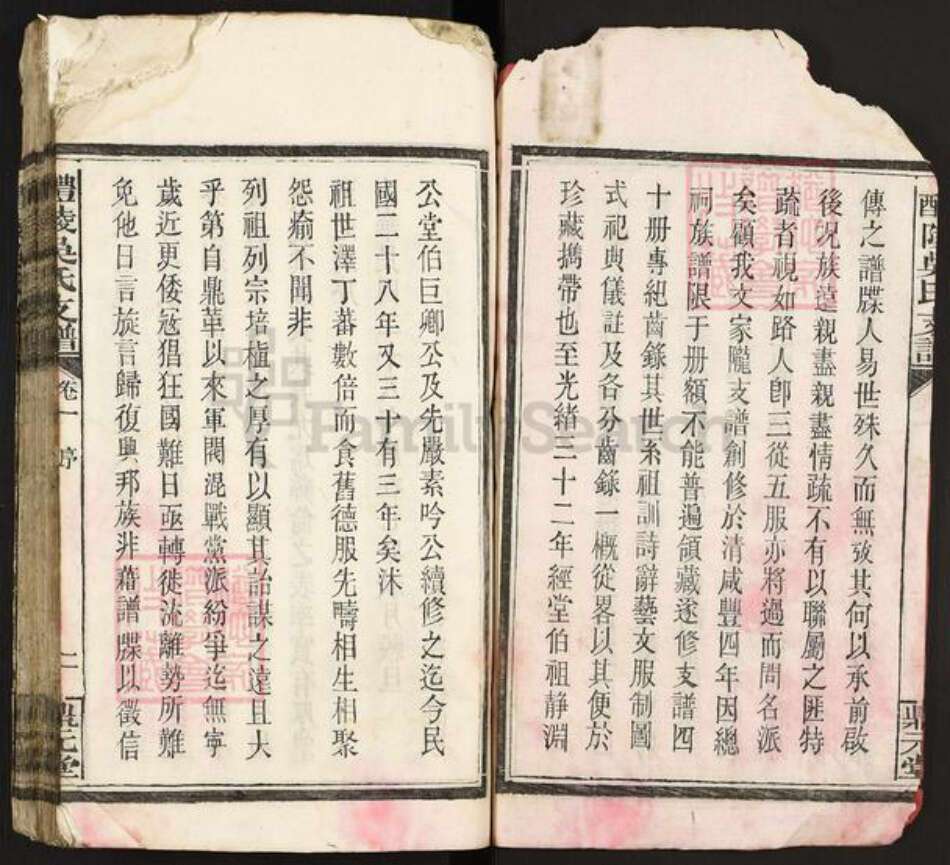 傳之譜牒人易世殊久而無攷其何以承前啟
後況族遠親盡親盡情疏不有以聯屬之匪特
疏者視如路人卽三從五服亦將過而問名派
矣顧我文家隴支譜創修於清咸豐四年因總
祠族譜限于册額不能普遍領藏遂修支譜四
十册專紀齒錄其世系祖訓詩辭藝文服制圖
式祀典儀註及各分齒錄一概從畧以其便於
珍藏攜帶也至光緒三十二年經堂伯祖靜淵
公堂伯巨卿公及先嚴素吟公續修之迄今民
國二十八年又三十有三年矣沐
祖世澤丁蕃數倍而食舊德服先疇相生相聚
怨瘉不聞非
列祖列宗培植之厚有以顯其詒謀之遠且大
乎第自鼎革以來軍閥混戰黨派紛爭迄無寧
歲近更倭寇猖狂國難日亟轉徙流離勢所難
免他日言旋言歸復興邦族非藉譜牒以徵信
醴陵吳氏支譜
卷一
序
二
鼎元堂
FamilySearch